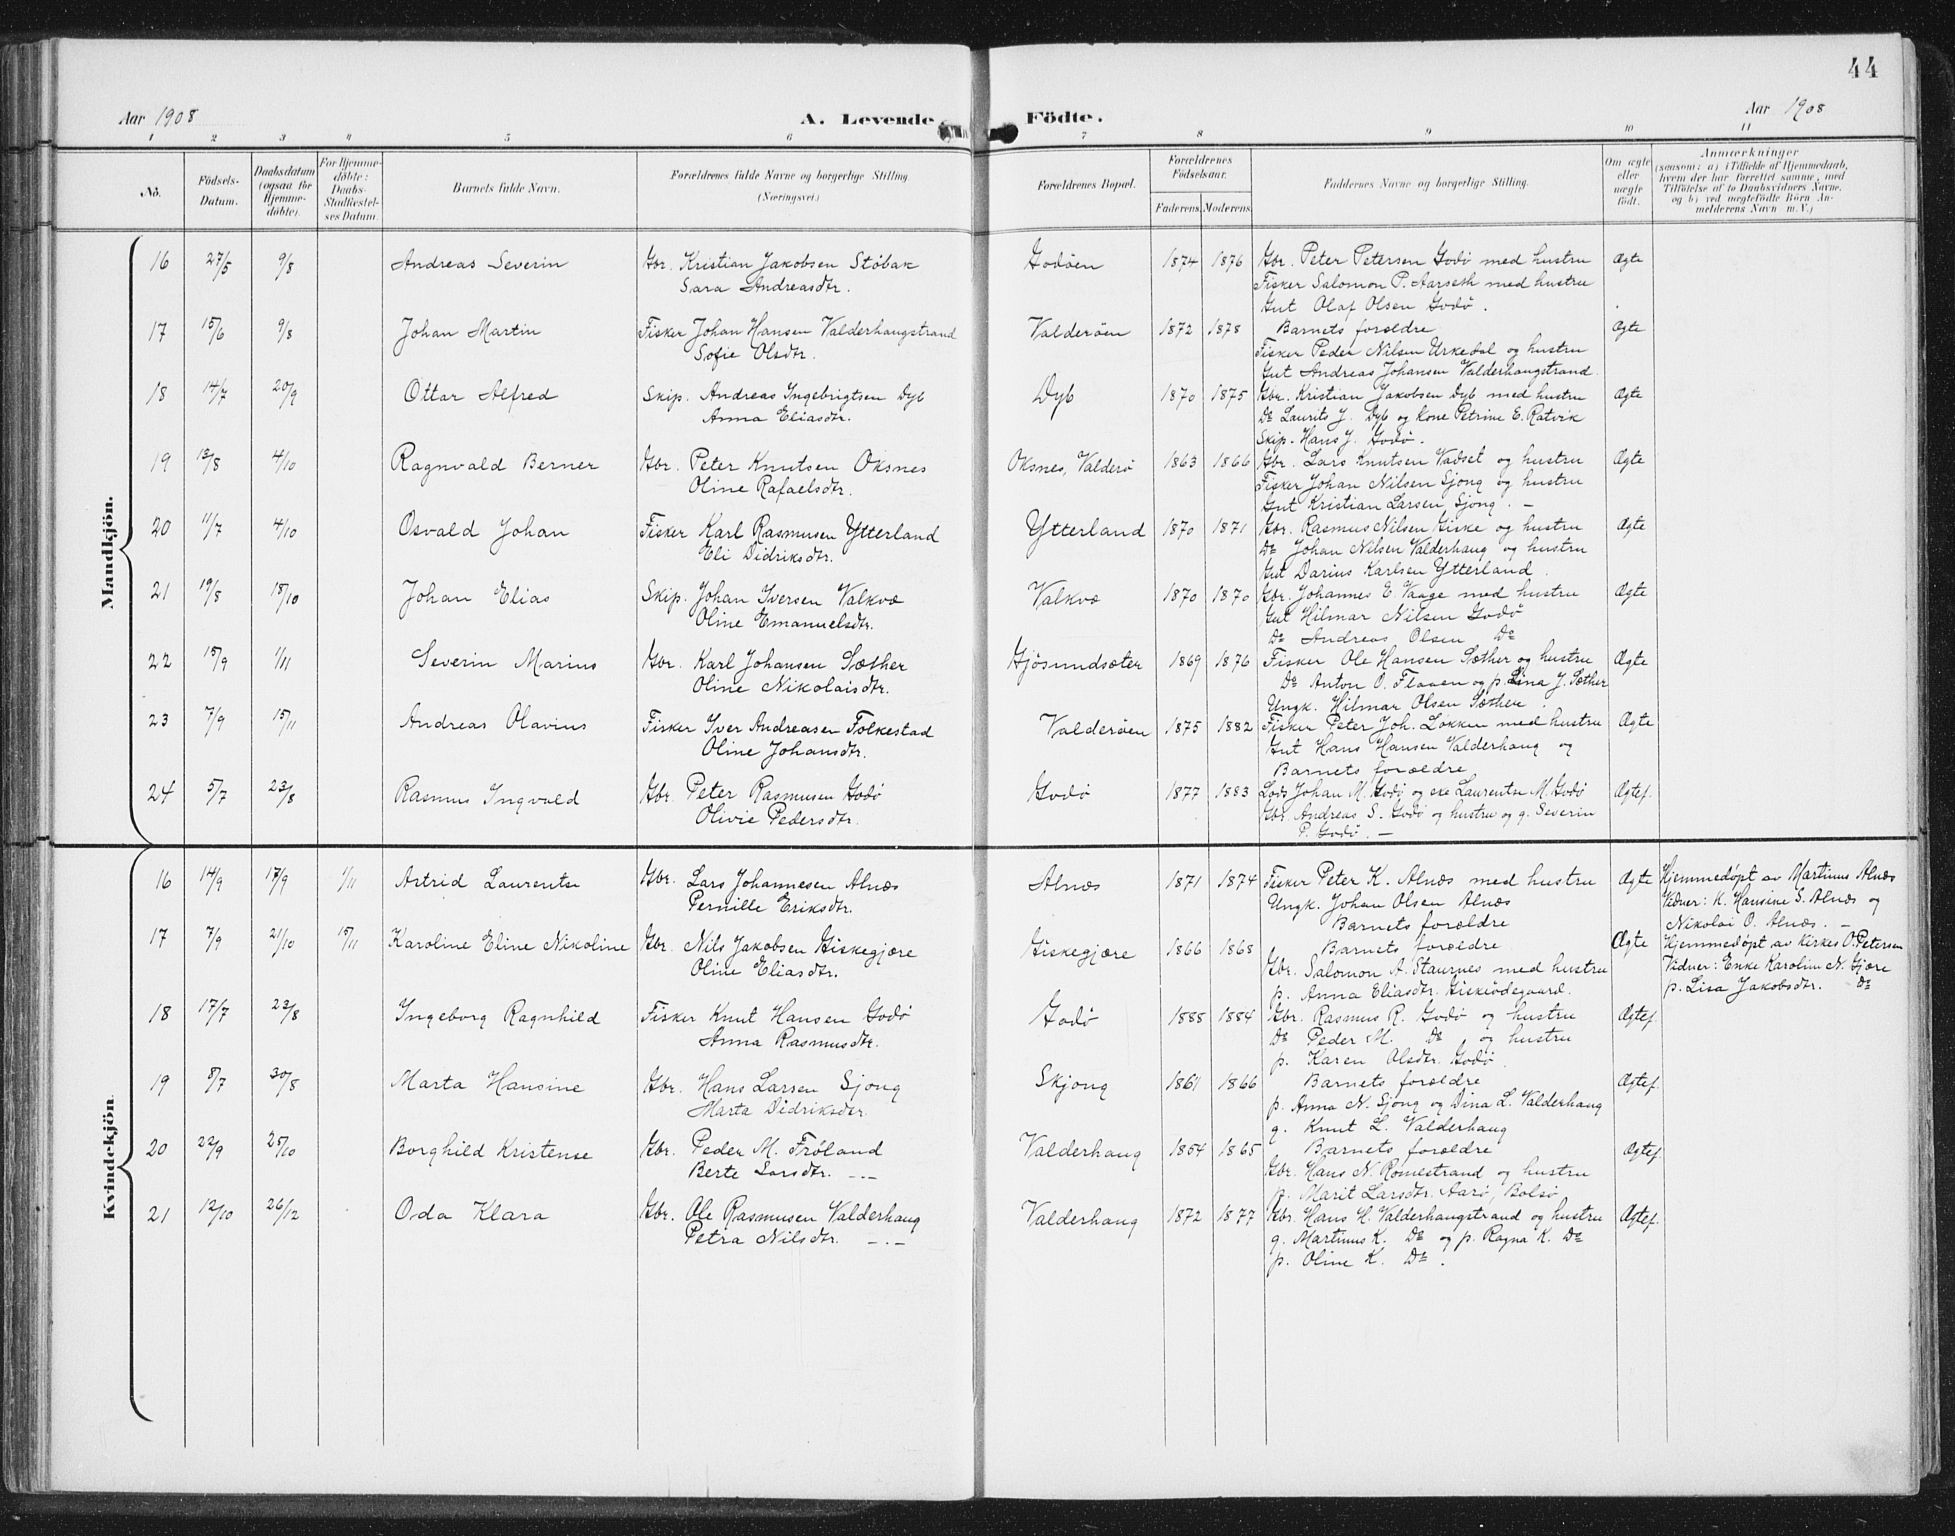 44
Aar 1908 A. Levende Födte. Aar 1908
1 2 3 4 5 6 7 8 9 10 11
No.
Födsels-Datum.
Daabsdatum (ogsaa for Hjemmedöbte).
For Hjemmedöbte: Daabs-Stadfæstelses Datum.
Barnets fulde Navn.
Forældrenes fulde Navne og borgerlige Stilling. (Næringsvei.)
Forældrenes Bopæl.
Forældrenes Födselsaar.
Faderens. Moderens.
Faddernes Navne og borgerlige Stilling.
Om ægte eller uægte födt.
Anmærkninger
(saasom: a) i Tilfælde af Hjemmedaab, hvem der har forrettet samme, med Tilföielse af to Daabsvidners Navne, og b) ved uægtefödte Börn Anmelderens Navn m. V.)
Mandkjön.
16 27/5 9/8 Andreas Severin Gbr. Kristian Jakobsen Stöbak Godöen 1874 1876 Gbr. Peter Petersen Godö med hustru Ægte
Sara Andreasdtr. Fisker Salomon P. Aarseth med hustru
Gut Olaf Olsen Godö.
17 15/6 9/8 Johan Martin Fisker Johan Hansen Valderhaugstrand Valderöen 1872 1878 Barnets forældre Ægte
Sofie Olsdtr. Fisker Peder Nilsen Urkedal og hustru
Gut Andreas Johansen Valderhaugstrand.
18 14/7 20/9 Ottar Alfred Skip. Andreas Ingebrigtsen Dyb Dyb 1870 1875 Gbr. Kristian Jakobsen Dyb med hustru Ægte
Anna Eliasdtr. Do Laurits J. Dyb og kone Petrine E. Ratvik
Skip. Hans J. Godö.
19 13/8 4/10 Ragnvald Berner Gbr. Peter Knutsen Oksnes Oksnes, Valderö 1863 1866 Gbr. Lars Knutsen Vadset og hustru Ægte
Oline Rafaelsdtr. Fisker Johan Nilsen Sjong og hustru
Gut Kristian Larsen Sjong. —
20 11/7 4/10 Osvald Johan Fisker Karl Rasmusen Ytterland Ytterland 1870 1871 Gbr. Rasmus Nilsen Giske og hustru Ægte
Eli Didriksdtr. Do Johan Nilsen Valderhaug og hustru
Gut Darius Karlsen Ytterland.
21 19/8 18/10 Johan Elias Skip. Johan Iversen Valkvæ Valkvæ 1870 1870 Gbr. Johannes E. Vaage med hustru Ægte
Oline Emanuelsdtr. Gut Hilmar Nilsen Godö
Do Andreas Olsen Do
22 15/9 1/11 Severin Marius Gbr. Karl Johansen Sæther Gjösundsæter 1869 1876 Fisker Ole Hansen Sæther og hustru Ægte
Oline Nikolaisdtr. Do Anton O. Flaaen og p. Lina J. Sæther
Ungk. Hilmar Olsen Sæther.
23 7/9 15/11 Andreas Olavius Fisker Iver Andreasen Folkestad Valderöen 1875 1882 Fisker Peter Joh. Løkken med hustru Ægte
Oline Johansdtr. Gut Hans Hansen Valderhaug og
Barnets forældre
24 5/7 23/8 Rasmus Ingvald Gbr. Peter Rasmusen Godö Godö 1877 1883 Lods Johan M. Godö og Laurentse M. Godö Ægtef.
Olivie Pedersdtr. Gbr. Andreas S. Godö og hustru og g. Severin
P. Godö. —
Kvindekjön.
16 14/9 17/9 1/11 Astrid Laurentse Gbr. Lars Johannesen Alnæs Alnæs 1871 1874 Fisker Peter K. Alnæs med hustru Ægte Hjemmedøpt av Martinus Alnæs
Pernille Eriksdtr. Ungk. Johan Olsen Alnæs Vidner: K. Hansine S. Alnæs og
Barnets forældre Nikolai O. Alnæs. —
17 7/9 21/10 15/11 Karoline Eline Nikoline Gbr. Nils Jakobsen Giskegjære Giskegjære 1866 1868 Barnets forældre Ægte Hjemmedøpt av Kirkes. O. Petersen
Oline Eliasdtr. Gbr. Salomon A. Staurnes med hustru Vidner: Enke Karoline N. Gjære
p. Anna Eliasdtr. Giskeödegaard. p. Lisa Jakobsdtr. Do
18 17/7 23/8 Ingeborg Ragnhild Fisker Knut Hansen Godö Godö 1888 1884 Gbr. Rasmus R. Godö og hustru Ægtef.
Anna Rasmusdtr. Do Peder M. Do og hustru
p. Karen Olsdtr. Godö.
19 8/7 30/8 Marta Hansine Gbr. Hans Larsen Sjong Skjong 1861 1866 Barnets forældre Ægtef.
Marta Didriksdtr. p. Anna N. Sjong og Dina L. Valderhaug
g. Knut L. Valderhaug
20 22/9 25/10 Borghild Kristense Gbr. Peder M. Fröland Valderhaug 1854 1865 Barnets forældre Ægtef.
Berte Larsdtr. —.— Gbr. Hans N. Romestrand og hustru
p. Marit Larsdtr. Aarö, Bolsö
21 12/10 26/12 Oda Klara Gbr. Ole Rasmusen Valderhaug Valderhaug 1872 1877 Gbr. Hans H. Valderhaugstrand og hustru Ægtef.
Petra Nilsdtr. —.— g. Martinus K. Do og p. Ragna K. Do
p. Oline K. Do.